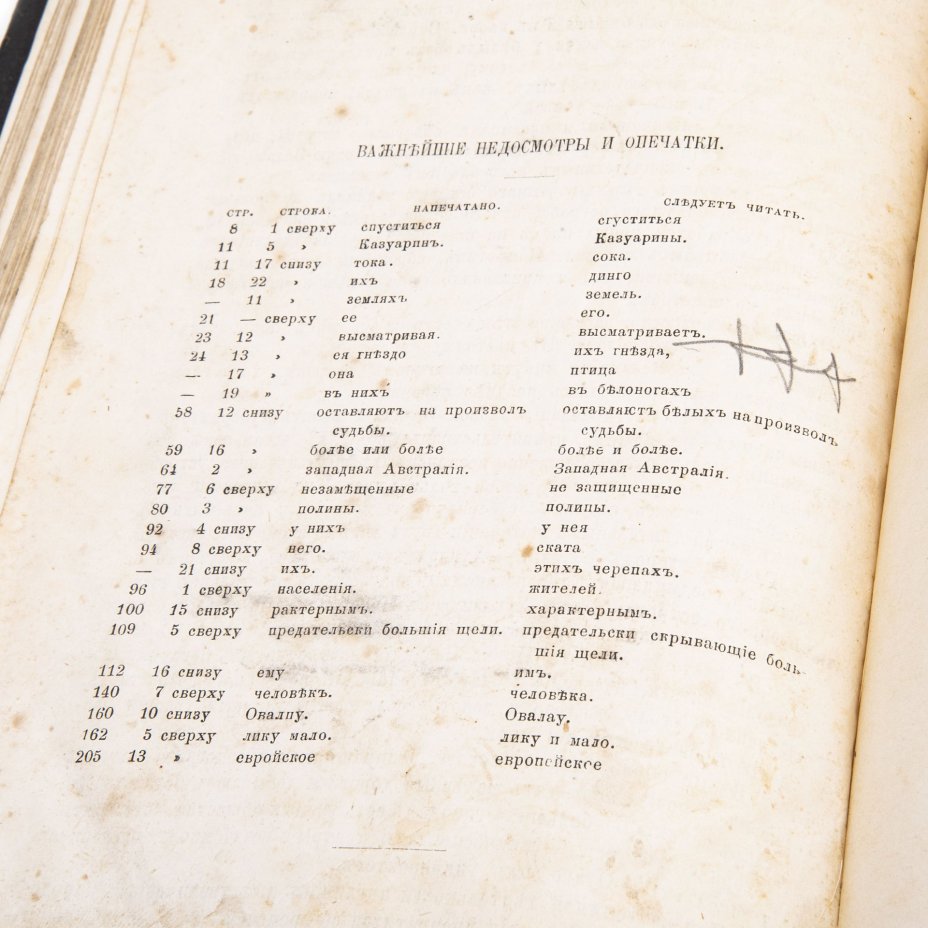 ВАЖНѢЙШІЕ НЕДОСМОТРЫ И ОПЕЧАТКИ.
СТР. СТРОКА. НАПЕЧАТАНО. СЛѢДУЕТЪ ЧИТАТЬ.
8 1 сверху спуститься сгуститься
11 5 » Казуаринъ. Казуарины.
11 17 снизу тока. сока.
18 22 » ихъ динго
— 11 » земляхъ земель.
21 — сверху ее его.
23 12 » высматривая. высматриваетъ.
24 13 » ея гнѣздо ихъ гнѣзда,
— 17 » она птица
— 19 » въ нихъ въ бѣлоногахъ
58 12 снизу оставляютъ на произволъ оставляютъ бѣлыхъ на произволъ
судьбы. судьбы.
59 16 » болѣе или болѣе болѣе и болѣе.
64 2 » западная Австралія. Западная Австралія.
77 6 сверху незамѣщенные не защищенные
80 3 » полины. полипы.
92 4 снизу у нихъ у нея
94 8 сверху него. ската
— 21 снизу ихъ. этихъ черепахъ.
96 1 сверху населенія. жителей.
100 15 снизу рактернымъ. характернымъ.
109 5 сверху предательски большія щели. предательски скрывающіе боль-
шія щели.
112 16 снизу ему имъ.
140 7 сверху человѣкъ. человѣка.
160 10 снизу Овалпу. Овалау.
162 5 сверху лику мало. лику и мало.
205 13 » евройское европейское